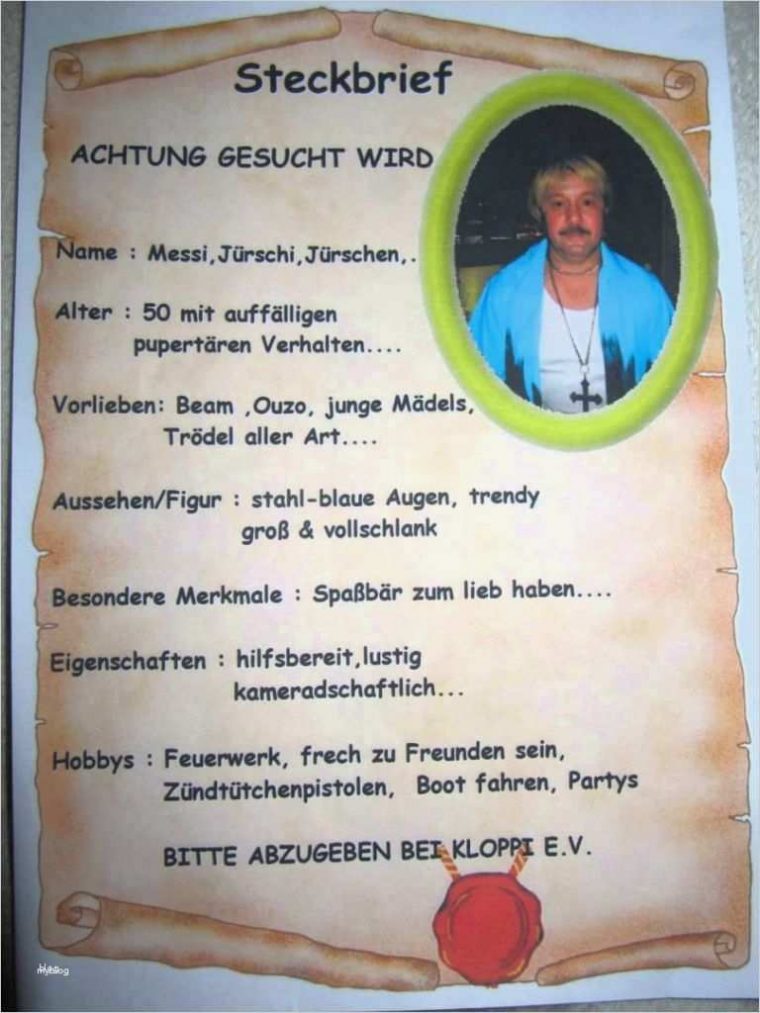 Steckbrief
ACHTUNG GESUCHT WIRD
Name : Messi,Jürschi,Jürschen,.
Alter : 50 mit auffälligen
pupertären Verhalten....
Vorlieben: Beam ,Ouzo, junge Mädels,
Trödel aller Art....
Aussehen/Figur : stahl-blaue Augen, trendy
groß & vollschlank
Besondere Merkmale : Spaßbär zum lieb haben....
Eigenschaften : hilfsbereit,lustig
kameradschaftlich...
Hobbys : Feuerwerk, frech zu Freunden sein,
Zündtütchenpistolen, Boot fahren, Partys
BITTE ABZUGEBEN BEI KLOPPI E.V.